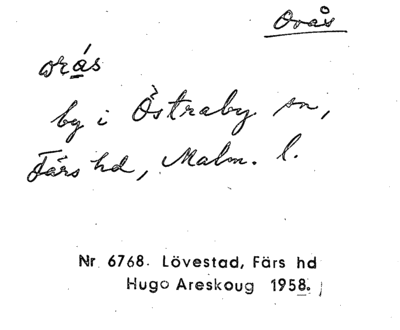 Orås
orás
by i Östraby sn,
Färs hd, Malm. l.
Nr 6768. Lövestad, Färs hd
Hugo Areskoug 1958.